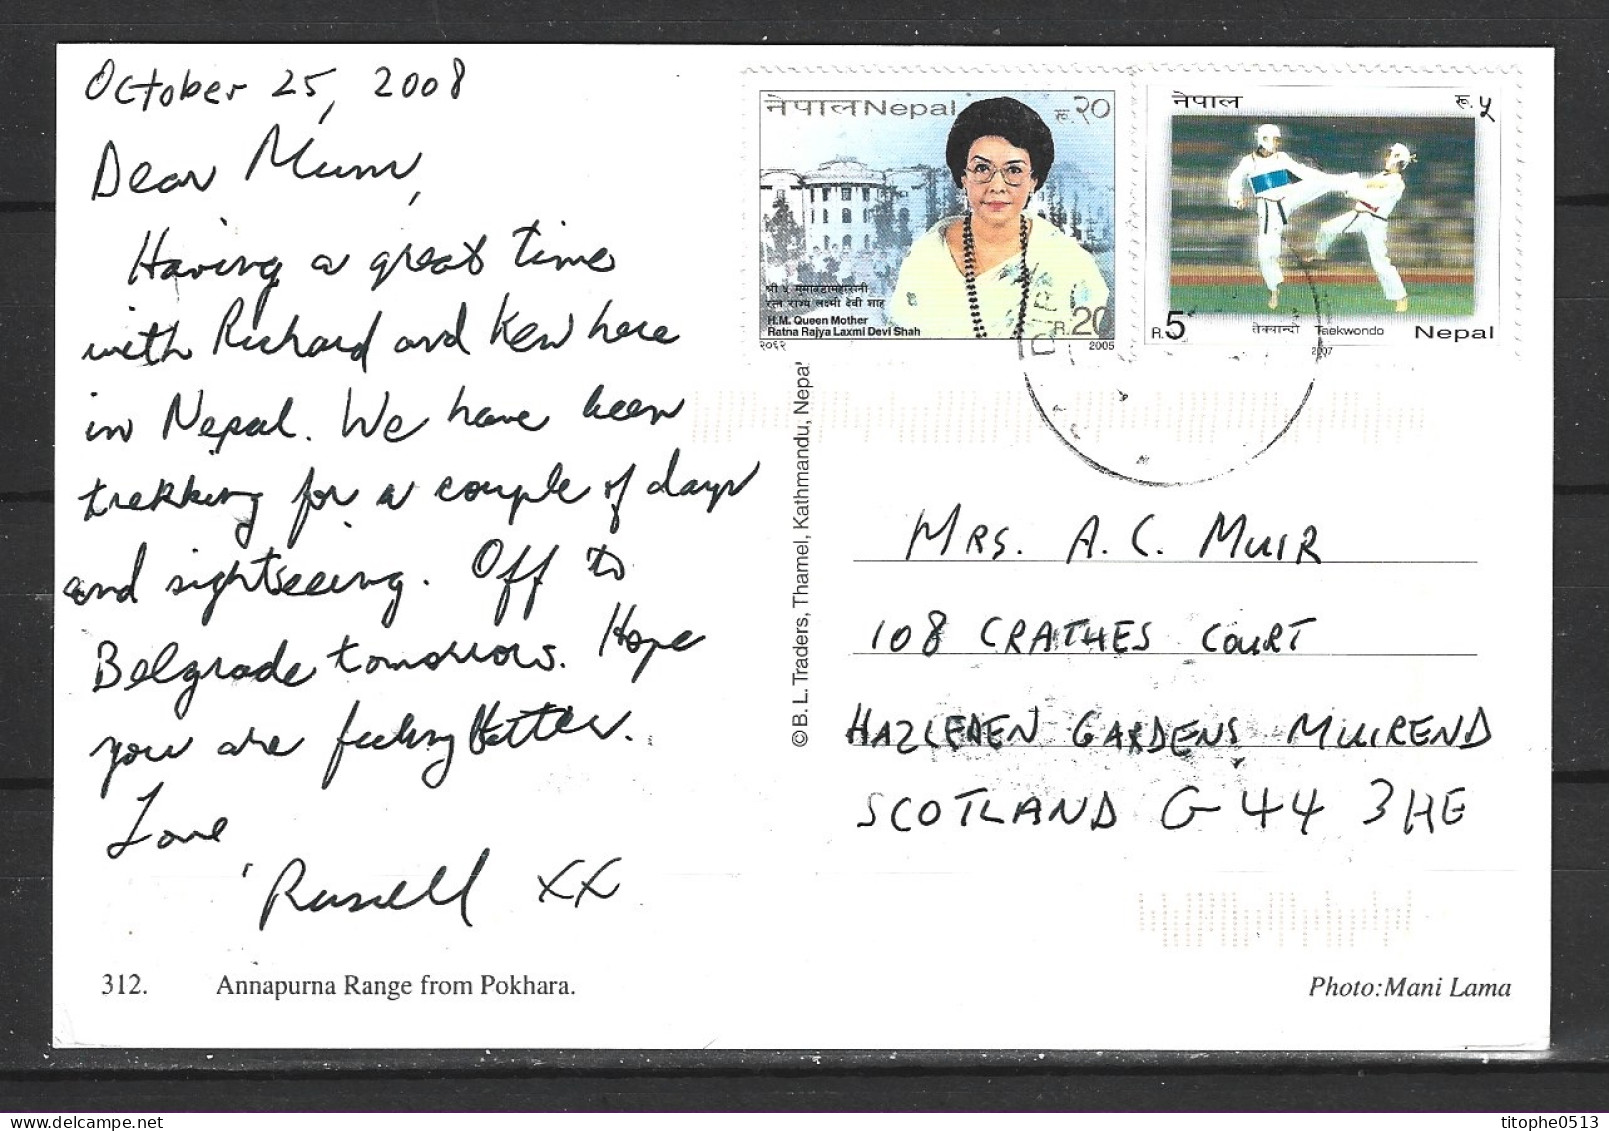 October 25, 2008
Dear Mum,
Having a great time
with Richard and Ken here
in Nepal. We have been
trekking for a couple of days
and sightseeing. Off to
Belgrade tomorrow. Hope
you are feeling better.
Love
Russell XX
312. Annapurna Range from Pokhara.
नेपाल Nepal रू. २०
श्री ५ मुमाबडामहारानी
रत्न राज्य लक्ष्मी देवी शाह
H.M. Queen Mother
Ratna Rajya Laxmi Devi Shah
R. 20
२०६२ 2005
नेपाल रू. ५
R. 5 तेक्वान्दो Taekwondo Nepal
2007
© B. L. Traders, Thamel, Kathmandu, Nepal
MRS. A. C. MUIR
108 CRATHES COURT
HAZLEDEN GARDENS MUIREND
SCOTLAND G44 3HE
Photo:Mani Lama
titophe0513